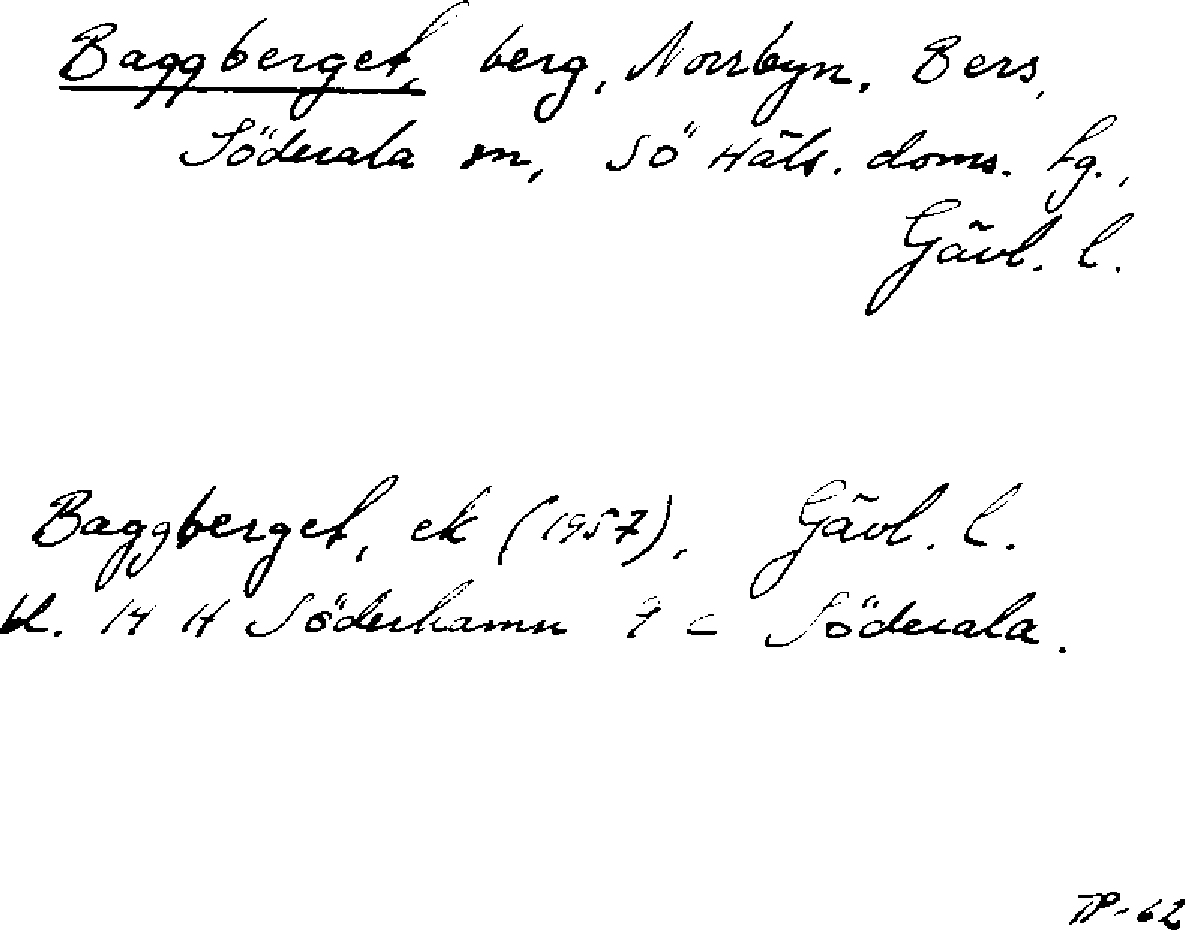 Baggberget, berg, Norrbyn, Bers,
Söderala sn, Sö Häls. doms. tg.,
Gävl. l.
Baggberget, ek (1957), Gävl. l.
bl. 14 H Söderhamn 9 c Söderala.
TP-62